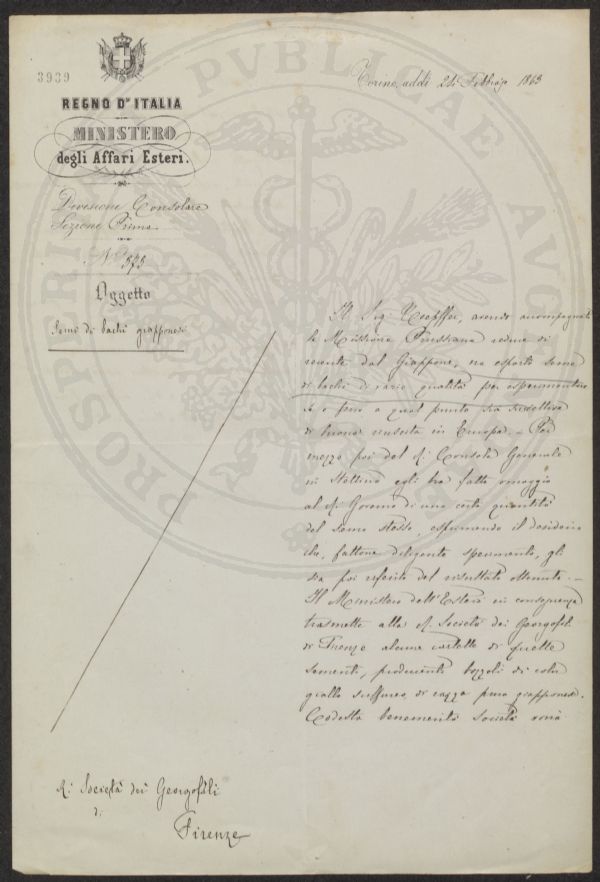 3939
Torino, addì 24 Febbraio 1863
REGNO D'ITALIA
MINISTERO
degli Affari Esteri.
Divisione Consolare
Sezione Prima
N° 373
Oggetto
Seme di bachi giapponesi
Il Sig. avendo accompagnata
la Missione Prussiana reduce di
recente dal Giappone, ne esportò seme
di bachi di varie qualità per esperimentare
se e fino a qual punto sia suscettiva
di buona riuscita in Europa. - Per
mezzo poi del R. Console Generale
in Stettino egli ha fatto omaggio
al R. Governo di una certa quantità
del seme stesso, esprimendo il desiderio
che, fattone diligente sperimento, gli
sia poi riferito del risultato ottenuto. -
Il Ministero dell'Estero in conseguenza
trasmette alla R. Società dei Georgofili
di Firenze alcune cartelle di quelle
sementi, producenti bozzoli di color
giallo sulfureo, di razza pura giapponese.
Codesta benemerita Società vorrà
R. Società dei Georgofili
di
Firenze
PROSPERITATI PVBLICAE AVG